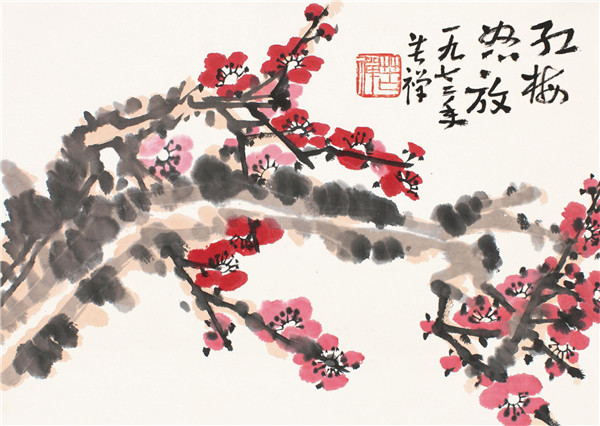 红梅
怒放
一九七三年
苦禅